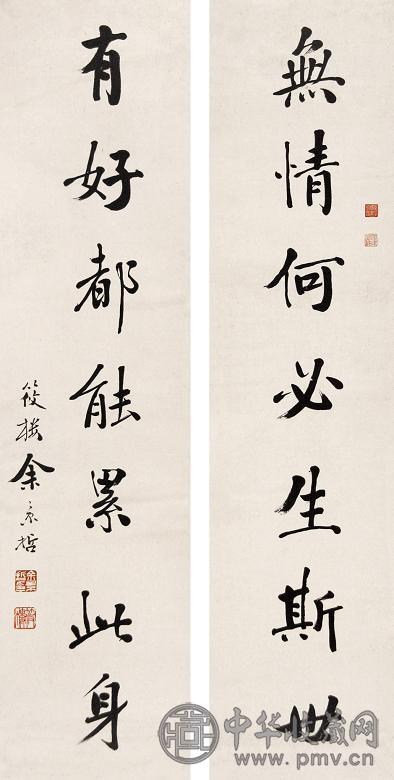 無情何必生斯世
有好都能累此身
筱 余 哲
中华收藏网
www.pmv.cn